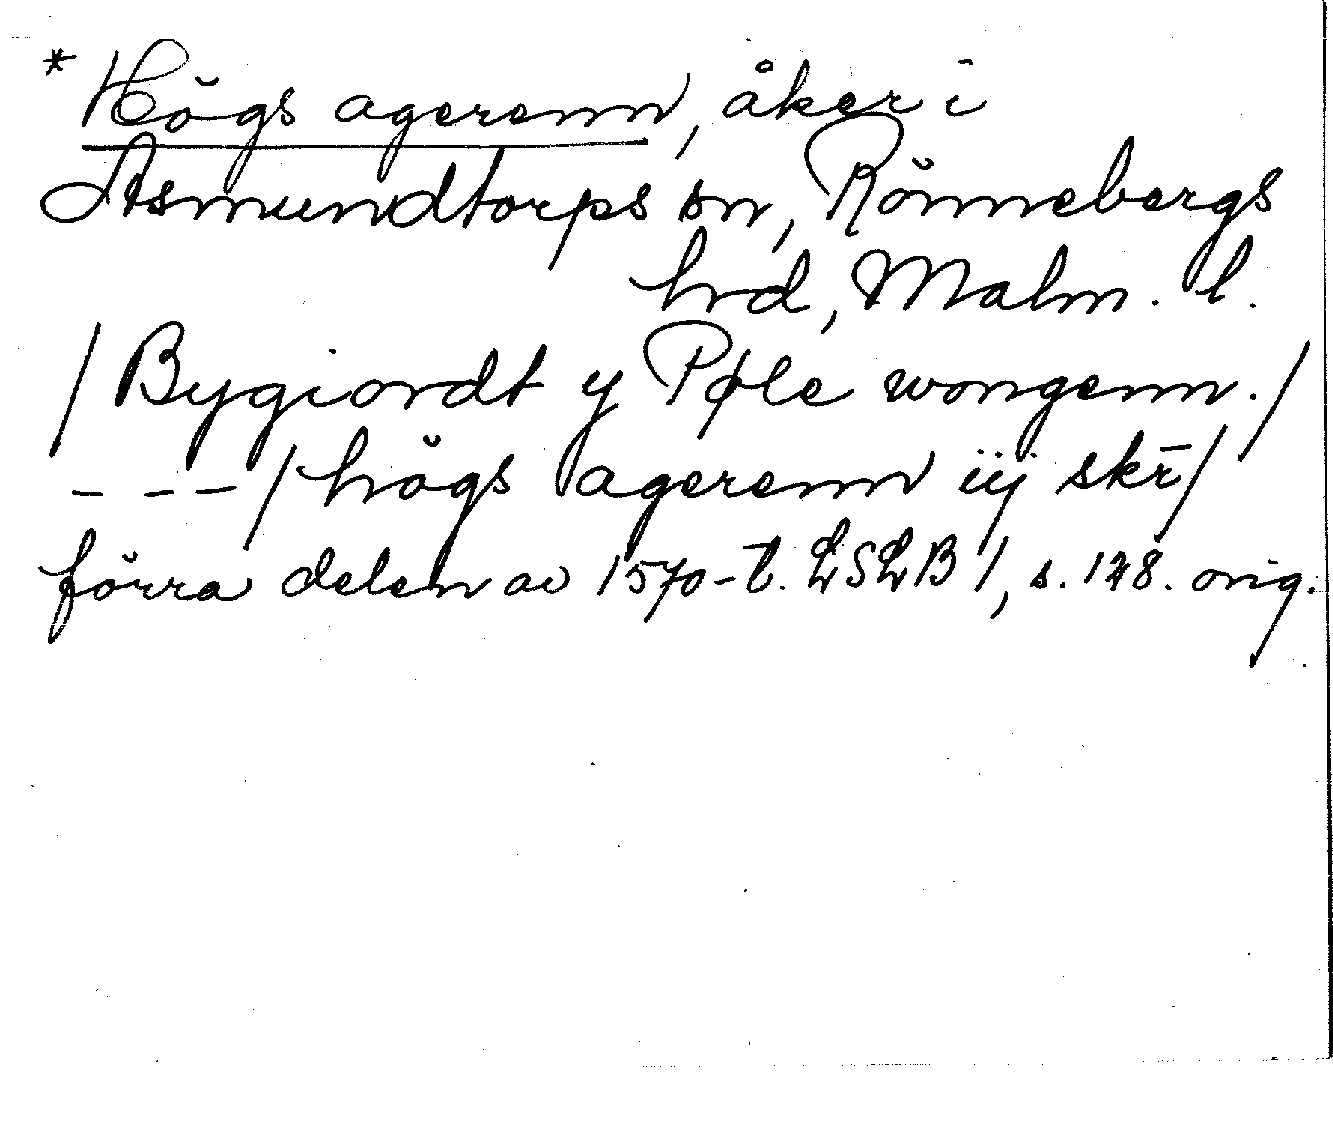 * Högs agerenn, åker i
Asmundtorps sn, Rönnebergs
hrd, Malm. l.
/ Bygiordt y Pøle wongenn. /
- - - / högs agerenn iij skr̄ /
förra delen av 1570-t. LSLB 1, s. 178. orig.